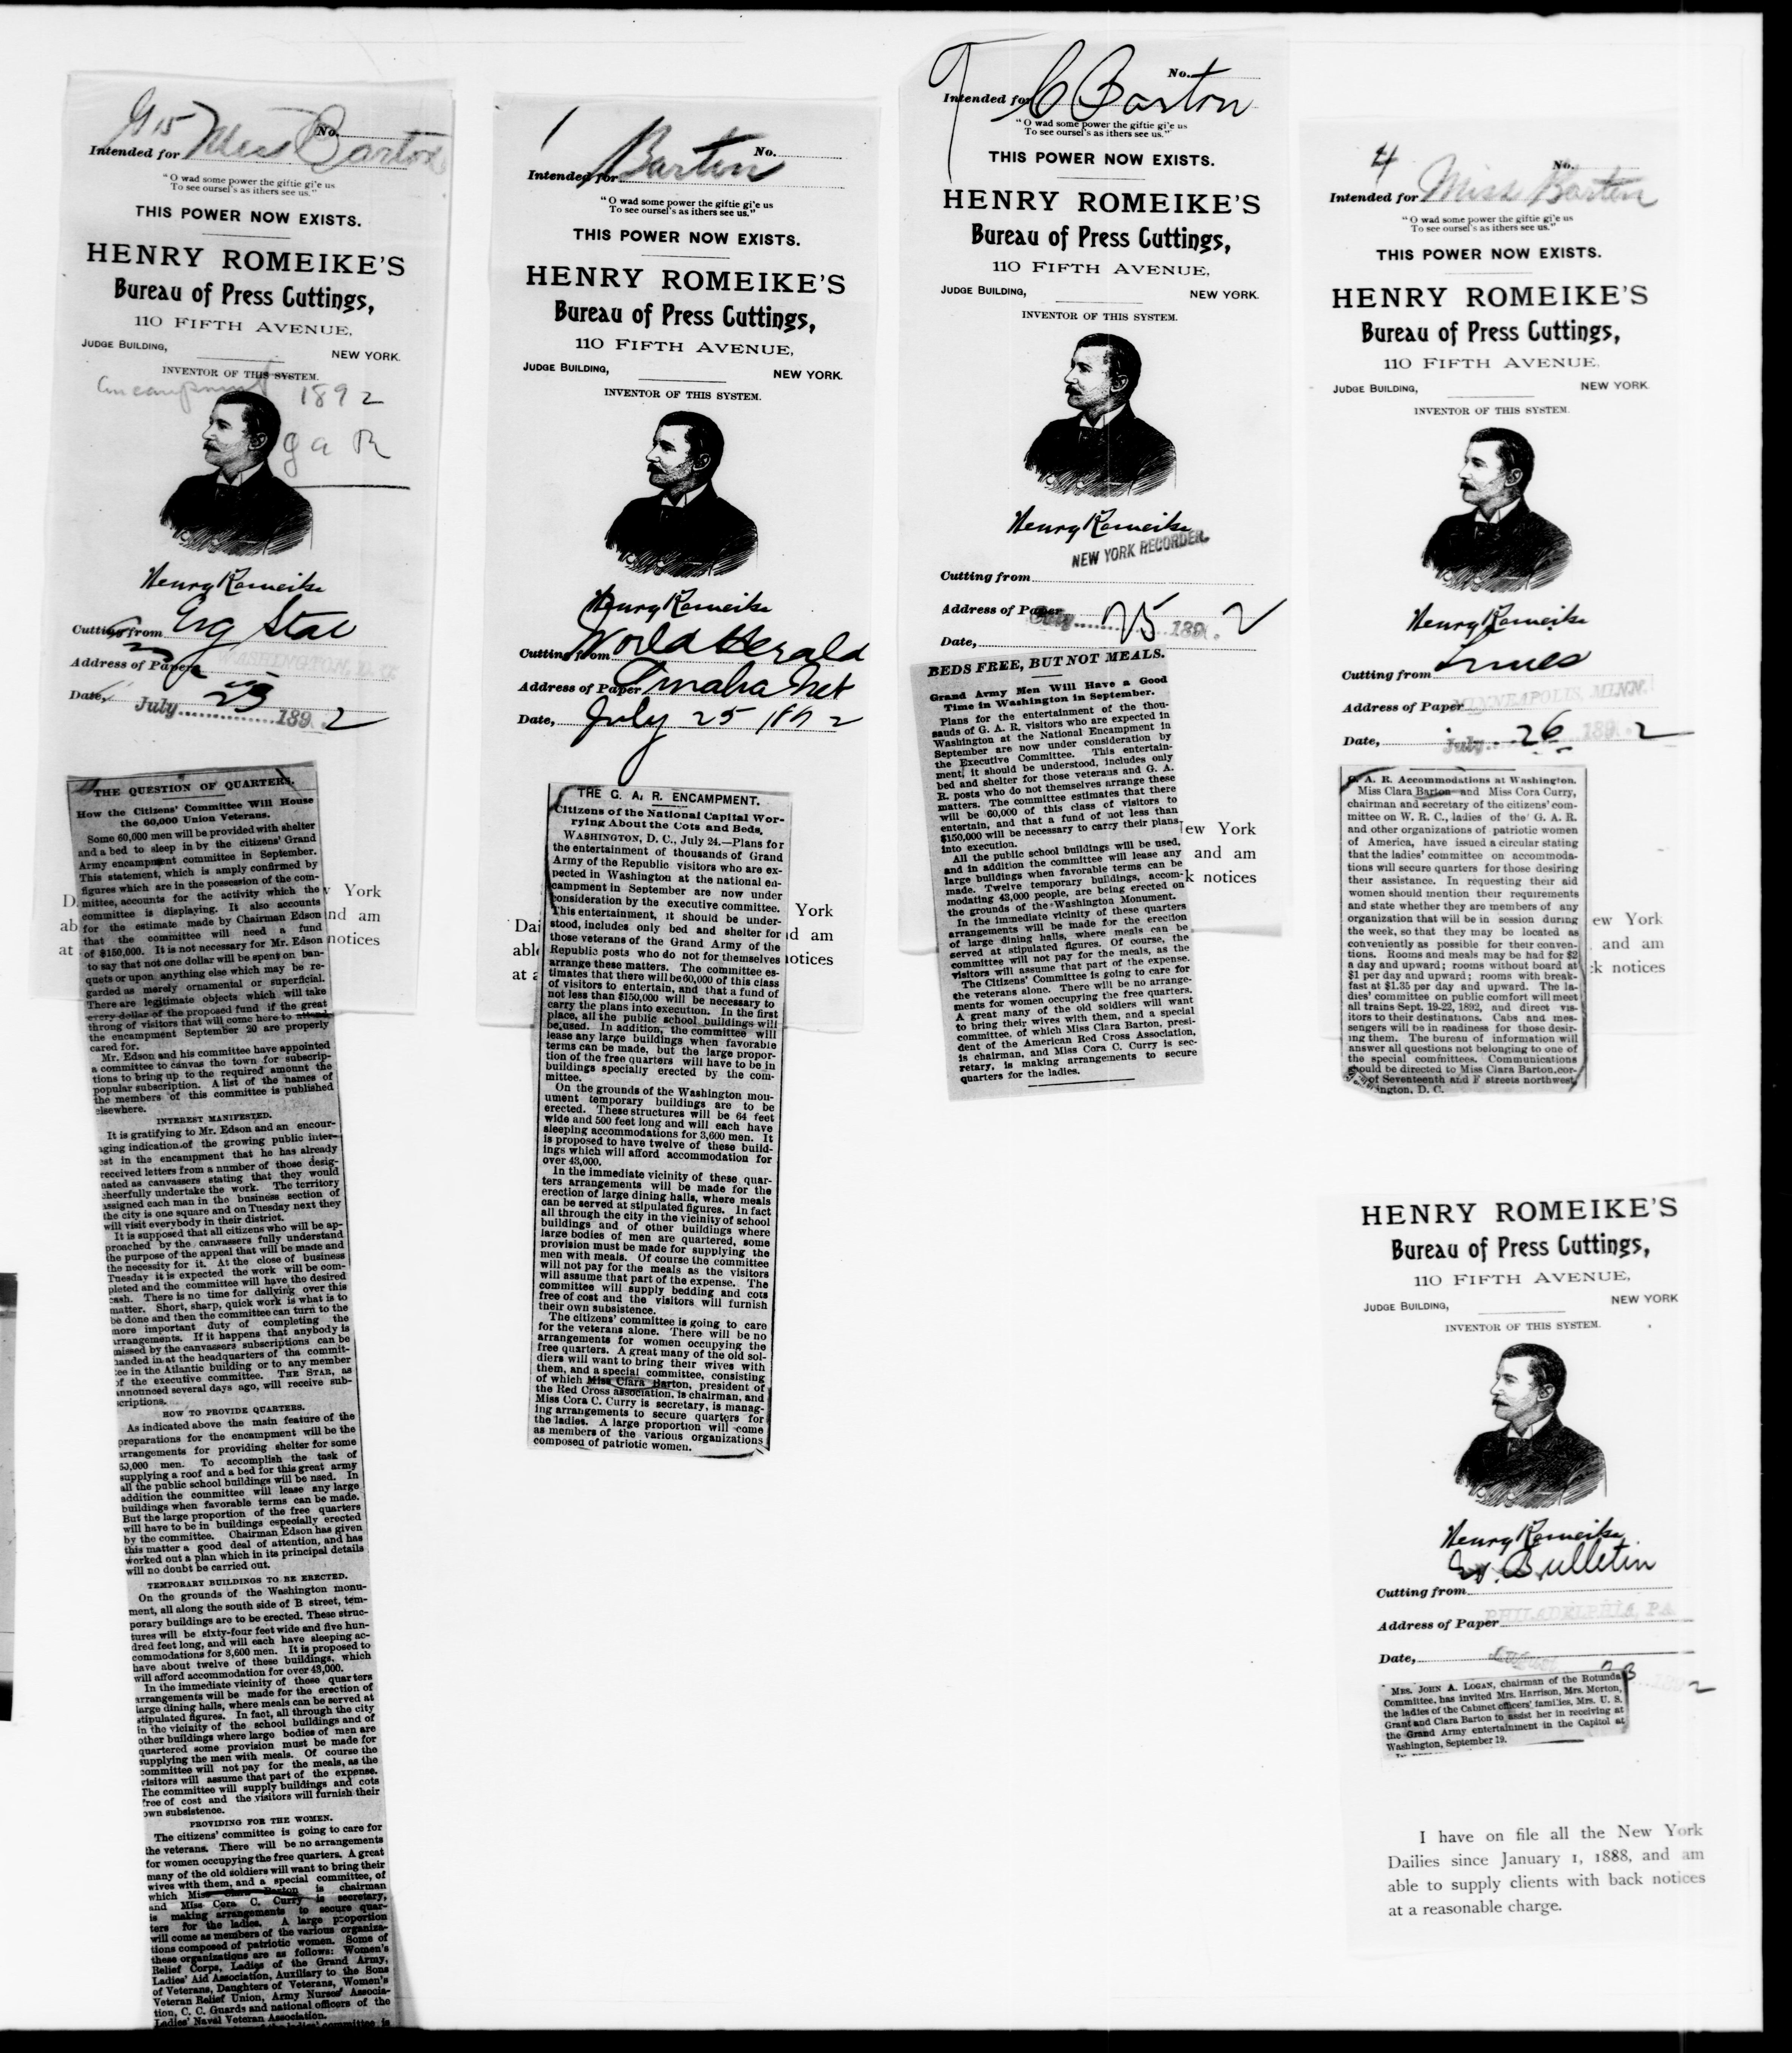 G 15 Miss Barton
No.
Intended for
"O wad some power the giftie gi'e us
To see oursel's as ithers see us."
THIS POWER NOW EXISTS.
HENRY ROMEIKE'S
Bureau of Press Cuttings,
110 FIFTH AVENUE,
JUDGE BUILDING,
NEW YORK.
INVENTOR OF THIS SYSTEM.
Encampment 1892
G a R
Henry Romeike
Cutting from Evg Star
Address of Paper WASHINGTON, D. C.
Date, July 23 1892
THE QUESTION OF QUARTERS.
How the Citizens' Committee Will House
the 60,000 Union Veterans.
Some 60,000 men will be provided with shelter
and a bed to sleep in by the citizens' Grand
Army encampment committee in September.
This statement, which is amply confirmed by
figures which are in the possession of the com-
mittee, accounts for the activity which the
committee is displaying. It also accounts
for the estimate made by Chairman Edson
that the committee will need a fund
of $150,000. It is not necessary for Mr. Edson
to say that not one dollar will be spent on ban-
quets or upon anything else which may be re-
garded as merely ornamental or superficial.
There are legitimate objects which will take
every dollar of the proposed fund if the great
throng of visitors that will come here to attend
the encampment September 20 are properly
cared for.
Mr. Edson and his committee have appointed
a committee to canvas the town for subscrip-
tions to bring up to the required amount the
popular subscription. A list of the names of
the members of this committee is published
elsewhere.
INTEREST MANIFESTED.
It is gratifying to Mr. Edson and an encour-
aging indication of the growing public inter-
est in the encampment that he has already
received letters from a number of those desig-
nated as canvassers stating that they would
cheerfully undertake the work. The territory
assigned each man in the business section of
the city is one square and on Tuesday next they
will visit everybody in their district.
It is supposed that all citizens who will be ap-
proached by the canvassers fully understand
the purpose of the appeal that will be made and
the necessity for it. At the close of business
Tuesday it is expected the work will be com-
pleted and the committee will have the desired
cash. There is no time for dallying over this
matter. Short, sharp, quick work is what is to
be done and then the committee can turn to the
more important duty of completing the
arrangements. If it happens that anybody is
missed by the canvassers subscriptions can be
handed in at the headquarters of the commit-
tee in the Atlantic building or to any member
of the executive committee. THE STAR, as
announced several days ago, will receive sub-
scriptions.
HOW TO PROVIDE QUARTERS.
As indicated above the main feature of the
preparations for the encampment will be the
arrangements for providing shelter for some
60,000 men. To accomplish the task of
supplying a roof and a bed for this great army
all the public school buildings will be used. In
addition the committee will lease any large
buildings when favorable terms can be made.
But the large proportion of the free quarters
will have to be in buildings especially erected
by the committee. Chairman Edson has given
this matter a good deal of attention, and has
worked out a plan which in its principal details
will no doubt be carried out.
TEMPORARY BUILDINGS TO BE ERECTED.
On the grounds of the Washington monu-
ment, all along the south side of B street, tem-
porary buildings are to be erected. These struc-
tures will be sixty-four feet wide and five hun-
dred feet long, and will each have sleeping ac-
commodations for 3,600 men. It is proposed to
have about twelve of these buildings, which
will afford accommodation for over 43,000.
In the immediate vicinity of these quarters
arrangements will be made for the erection of
large dining halls, where meals can be served at
stipulated figures. In fact, all through the city
in the vicinity of the school buildings and of
other buildings where large bodies of men are
quartered some provision must be made for
supplying the men with meals. Of course the
committee will not pay for the meals, as the
visitors will assume that part of the expense.
The committee will supply buildings and cots
free of cost and the visitors will furnish their
own subsistence.
PROVIDING FOR THE WOMEN.
The citizens' committee is going to care for
the veterans. There will be no arrangements
for women occupying the free quarters. A great
many of the old soldiers will want to bring their
wives with them, and a special committee, of
which Miss Clara Barton is chairman
and Miss Cora C. Curry is secretary,
is making arrangements to secure quar-
ters for the ladies. A large proportion
will come as members of the various organiza-
tions composed of patriotic women. Some of
these organizations are as follows: Women's
Relief Corps, Ladies of the Grand Army,
Ladies' Aid Association, Auxiliary to the Sons
of Veterans, Daughters of Veterans, Women's
Veteran Relief Union, Army Nurses' Associa-
tion, C. C. Guards and national officers of the
Ladies' Naval Veteran Association.
D
ab
at
York
nd am
notices
1
Barton
No.
Intended for
"O wad some power the giftie gi'e us
To see oursel's as ithers see us."
THIS POWER NOW EXISTS.
HENRY ROMEIKE'S
Bureau of Press Cuttings,
110 FIFTH AVENUE,
JUDGE BUILDING,
NEW YORK.
INVENTOR OF THIS SYSTEM.
Henry Romeike
Cutting from World Herald
Address of Paper Omaha Neb
Date, July 25 1892
THE G. A. R. ENCAMPMENT.
Citizens of the National Capital Wor-
rying About the Cots and Beds.
WASHINGTON, D. C., July 24.—Plans for
the entertainment of thousands of Grand
Army of the Republic visitors who are ex-
pected in Washington at the national en-
campment in September are now under
consideration by the executive committee.
This entertainment, it should be under-
stood, includes only bed and shelter for
those veterans of the Grand Army of the
Republic posts who do not for themselves
arrange these matters. The committee es-
timates that there will be 60,000 of this class
of visitors to entertain, and that a fund of
not less than $150,000 will be necessary to
carry the plans into execution. In the first
place, all the public school buildings will
be used. In addition, the committee will
lease any large buildings when favorable
terms can be made, but the large propor-
tion of the free quarters will have to be in
buildings specially erected by the com-
mittee.
On the grounds of the Washington mon-
ument temporary buildings are to be
erected. These structures will be 64 feet
wide and 500 feet long and will each have
sleeping accommodations for 3,600 men. It
is proposed to have twelve of these build-
ings which will afford accommodation for
over 43,000.
In the immediate vicinity of these quar-
ters arrangements will be made for the
erection of large dining halls, where meals
can be served at stipulated figures. In fact
all through the city in the vicinity of school
buildings and of other buildings where
large bodies of men are quartered, some
provision must be made for supplying the
men with meals. Of course the committee
will not pay for the meals as the visitors
will assume that part of the expense. The
committee will supply bedding and cots
free of cost and the visitors will furnish
their own subsistence.
The citizens' committee is going to care
for the veterans alone. There will be no
arrangements for women occupying the
free quarters. A great many of the old sol-
diers will want to bring their wives with
them, and a special committee, consisting
of which Miss Clara Barton, president of
the Red Cross association, is chairman, and
Miss Cora C. Curry is secretary, is manag-
ing arrangements to secure quarters for
the ladies. A large proportion will come
as members of the various organizations
composed of patriotic women.
Dai
able
at a
York
d am
otices
C Barton
No.
Intended for
"O wad some power the giftie gi'e us
To see oursel's as ithers see us."
THIS POWER NOW EXISTS.
HENRY ROMEIKE'S
Bureau of Press Cuttings,
110 FIFTH AVENUE,
JUDGE BUILDING,
NEW YORK.
INVENTOR OF THIS SYSTEM.
Henry Romeike
NEW YORK RECORDER.
Cutting from
Address of Paper
Date, July 25 1892
BEDS FREE, BUT NOT MEALS.
Grand Army Men Will Have a Good
Time in Washington in September.
Plans for the entertainment of the thou-
sands of G. A. R. visitors who are expected in
Washington at the National Encampment in
September are now under consideration by
the Executive Committee. This entertain-
ment, it should be understood, includes only
bed and shelter for those veterans and G. A.
R. posts who do not themselves arrange these
matters. The committee estimates that there
will be 60,000 of this class of visitors to
entertain, and that a fund of not less than
$150,000 will be necessary to carry their plans
into execution.
All the public school buildings will be used,
and in addition the committee will lease any
large buildings when favorable terms can be
made. Twelve temporary buildings, accom-
modating 43,000 people, are being erected on
the grounds of the Washington Monument.
In the immediate vicinity of these quarters
arrangements will be made for the erection
of large dining halls, where meals can be
served at stipulated figures. Of course, the
committee will not pay for the meals, as the
visitors will assume that part of the expense.
The Citizens' Committee is going to care for
the veterans alone. There will be no arrange-
ments for women occupying the free quarters.
A great many of the old soldiers will want
to bring their wives with them, and a special
committee, of which Miss Clara Barton, presi-
dent of the American Red Cross Association,
is chairman, and Miss Cora C. Curry is sec-
retary, is making arrangements to secure
quarters for the ladies.
New York
and am
k notices
4
Miss Barton
No.
Intended for
"O wad some power the giftie gi'e us
To see oursel's as ithers see us."
THIS POWER NOW EXISTS.
HENRY ROMEIKE'S
Bureau of Press Cuttings,
110 FIFTH AVENUE,
JUDGE BUILDING,
NEW YORK
INVENTOR OF THIS SYSTEM.
Henry Romeike
Cutting from Times
Address of Paper MINNEAPOLIS, MINN.
Date, July 26 1892
G. A. R. Accommodations at Washington.
Miss Clara Barton and Miss Cora Curry,
chairman and secretary of the citizens' com-
mittee on W. R. C., ladies of the G. A. R.
and other organizations of patriotic women
of America, have issued a circular stating
that the ladies' committee on accommoda-
tions will secure quarters for those desiring
their assistance. In requesting their aid
women should mention their requirements
and state whether they are members of any
organization that will be in session during
the week, so that they may be located as
conveniently as possible for their conven-
tions. Rooms and meals may be had for $2
a day and upward; rooms without board at
$1 per day and upward; rooms with break-
fast at $1.35 per day and upward. The la-
dies' committee on public comfort will meet
all trains Sept. 19-22, 1892, and direct vis-
itors to their destinations. Cabs and mes-
sengers will be in readiness for those desir-
ing them. The bureau of information will
answer all questions not belonging to one of
the special committees. Communications
should be directed to Miss Clara Barton, cor-
of Seventeenth and F streets northwest,
ington, D. C.
ew York
and am
k notices
HENRY ROMEIKE'S
Bureau of Press Cuttings,
110 FIFTH AVENUE,
JUDGE BUILDING,
NEW YORK
INVENTOR OF THIS SYSTEM.
Henry Romeike
Bulletin
Cutting from
Address of Paper PHILADELPHIA, PA.
Date,
MRS. JOHN A. LOGAN, chairman of the Rotunda
Committee, has invited Mrs. Harrison, Mrs. Morton,
the ladies of the Cabinet officers' families, Mrs. U. S.
Grant and Clara Barton to assist her in receiving at
the Grand Army entertainment in the Capitol at
Washington, September 19.
I have on file all the New York
Dailies since January 1, 1888, and am
able to supply clients with back notices
at a reasonable charge.